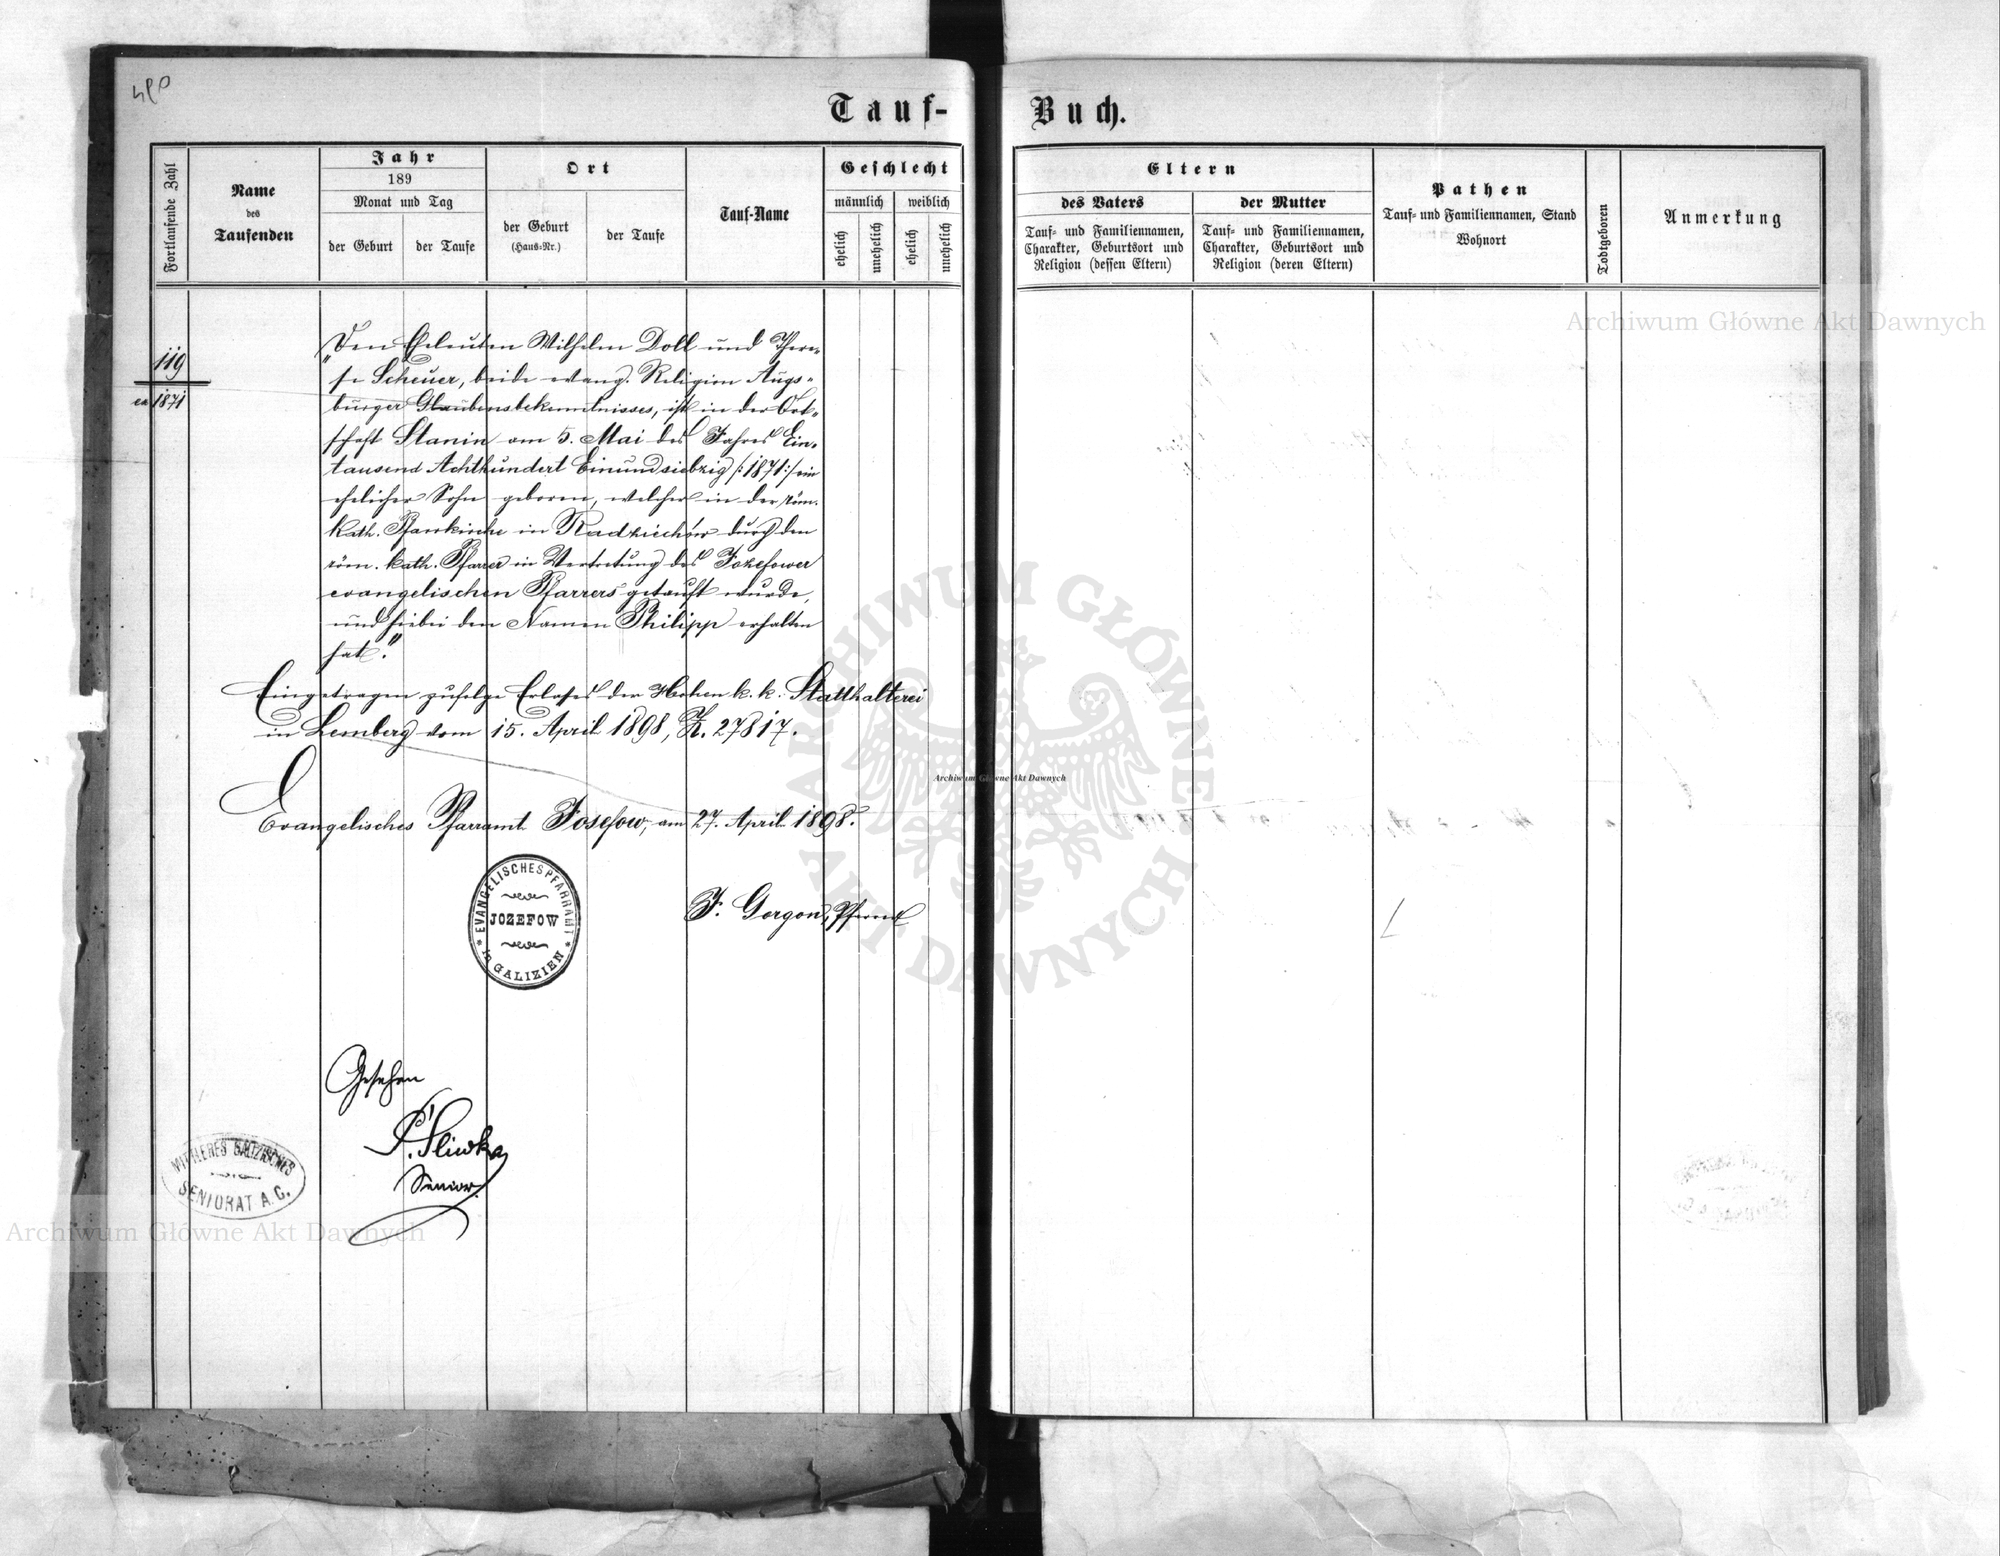 490
Tauf-Buch.
Fortlaufende Zahl
Name
des
Taufenden
Jahr
189
Monat und Tag
der Geburt
der Taufe
Ort
der Geburt
(Haus-Nr.)
der Taufe
Tauf-Name
Geschlecht
männlich
weiblich
ehelich
unehelich
ehelich
unehelich
Eltern
des Vaters
Tauf- und Familiennamen,
Charakter, Geburtsort und
Religion (dessen Eltern)
der Mutter
Tauf- und Familiennamen,
Charakter, Geburtsort und
Religion (deren Eltern)
Pathen
Tauf- und Familiennamen, Stand
Wohnort
Todtgeboren
Anmerkung
119
ex 1871
"Den Eheleuten Wilhelm Doll und There-
se Scheuer, beide evang. Religion Augs-
burger Glaubensbekenntnisses, ist in der Ort-
schaft Stanin am 5. Mai des Jahres Ein-
tausend Achthundert Einundsiebzig /:1871:/ ein
ehelicher Sohn geboren, welcher in der röm.
kath. Pfarrkirche in Radziechów durch den
röm. kath. Pfarrer in Vertretung des Jozefower
evangelischen Pfarrers getauft wurde,
und hiebei den Namen Philipp erhalten
hat."
Eingetragen zufolge Erlasses der Hohen k. k. Statthalterei
in Lemberg vom 15. April 1898, Z. 27817.
Evangelisches Pfarramt Josefow, am 27. April 1898.
EVANGELISCHES PFARRAMT
JOZEFOW
in GALIZIEN
J. Gorgon, Pfarrer
Gesehen
P. Śliwka
Senior.
MITTLERES GALIZISCHES
SENIORAT A.C.
Archiwum Główne Akt Dawnych
Archiwum Główne Akt Dawnych
Archiwum Główne Akt Dawnych
ARCHIWUM GŁÓWNE AKT DAWNYCH